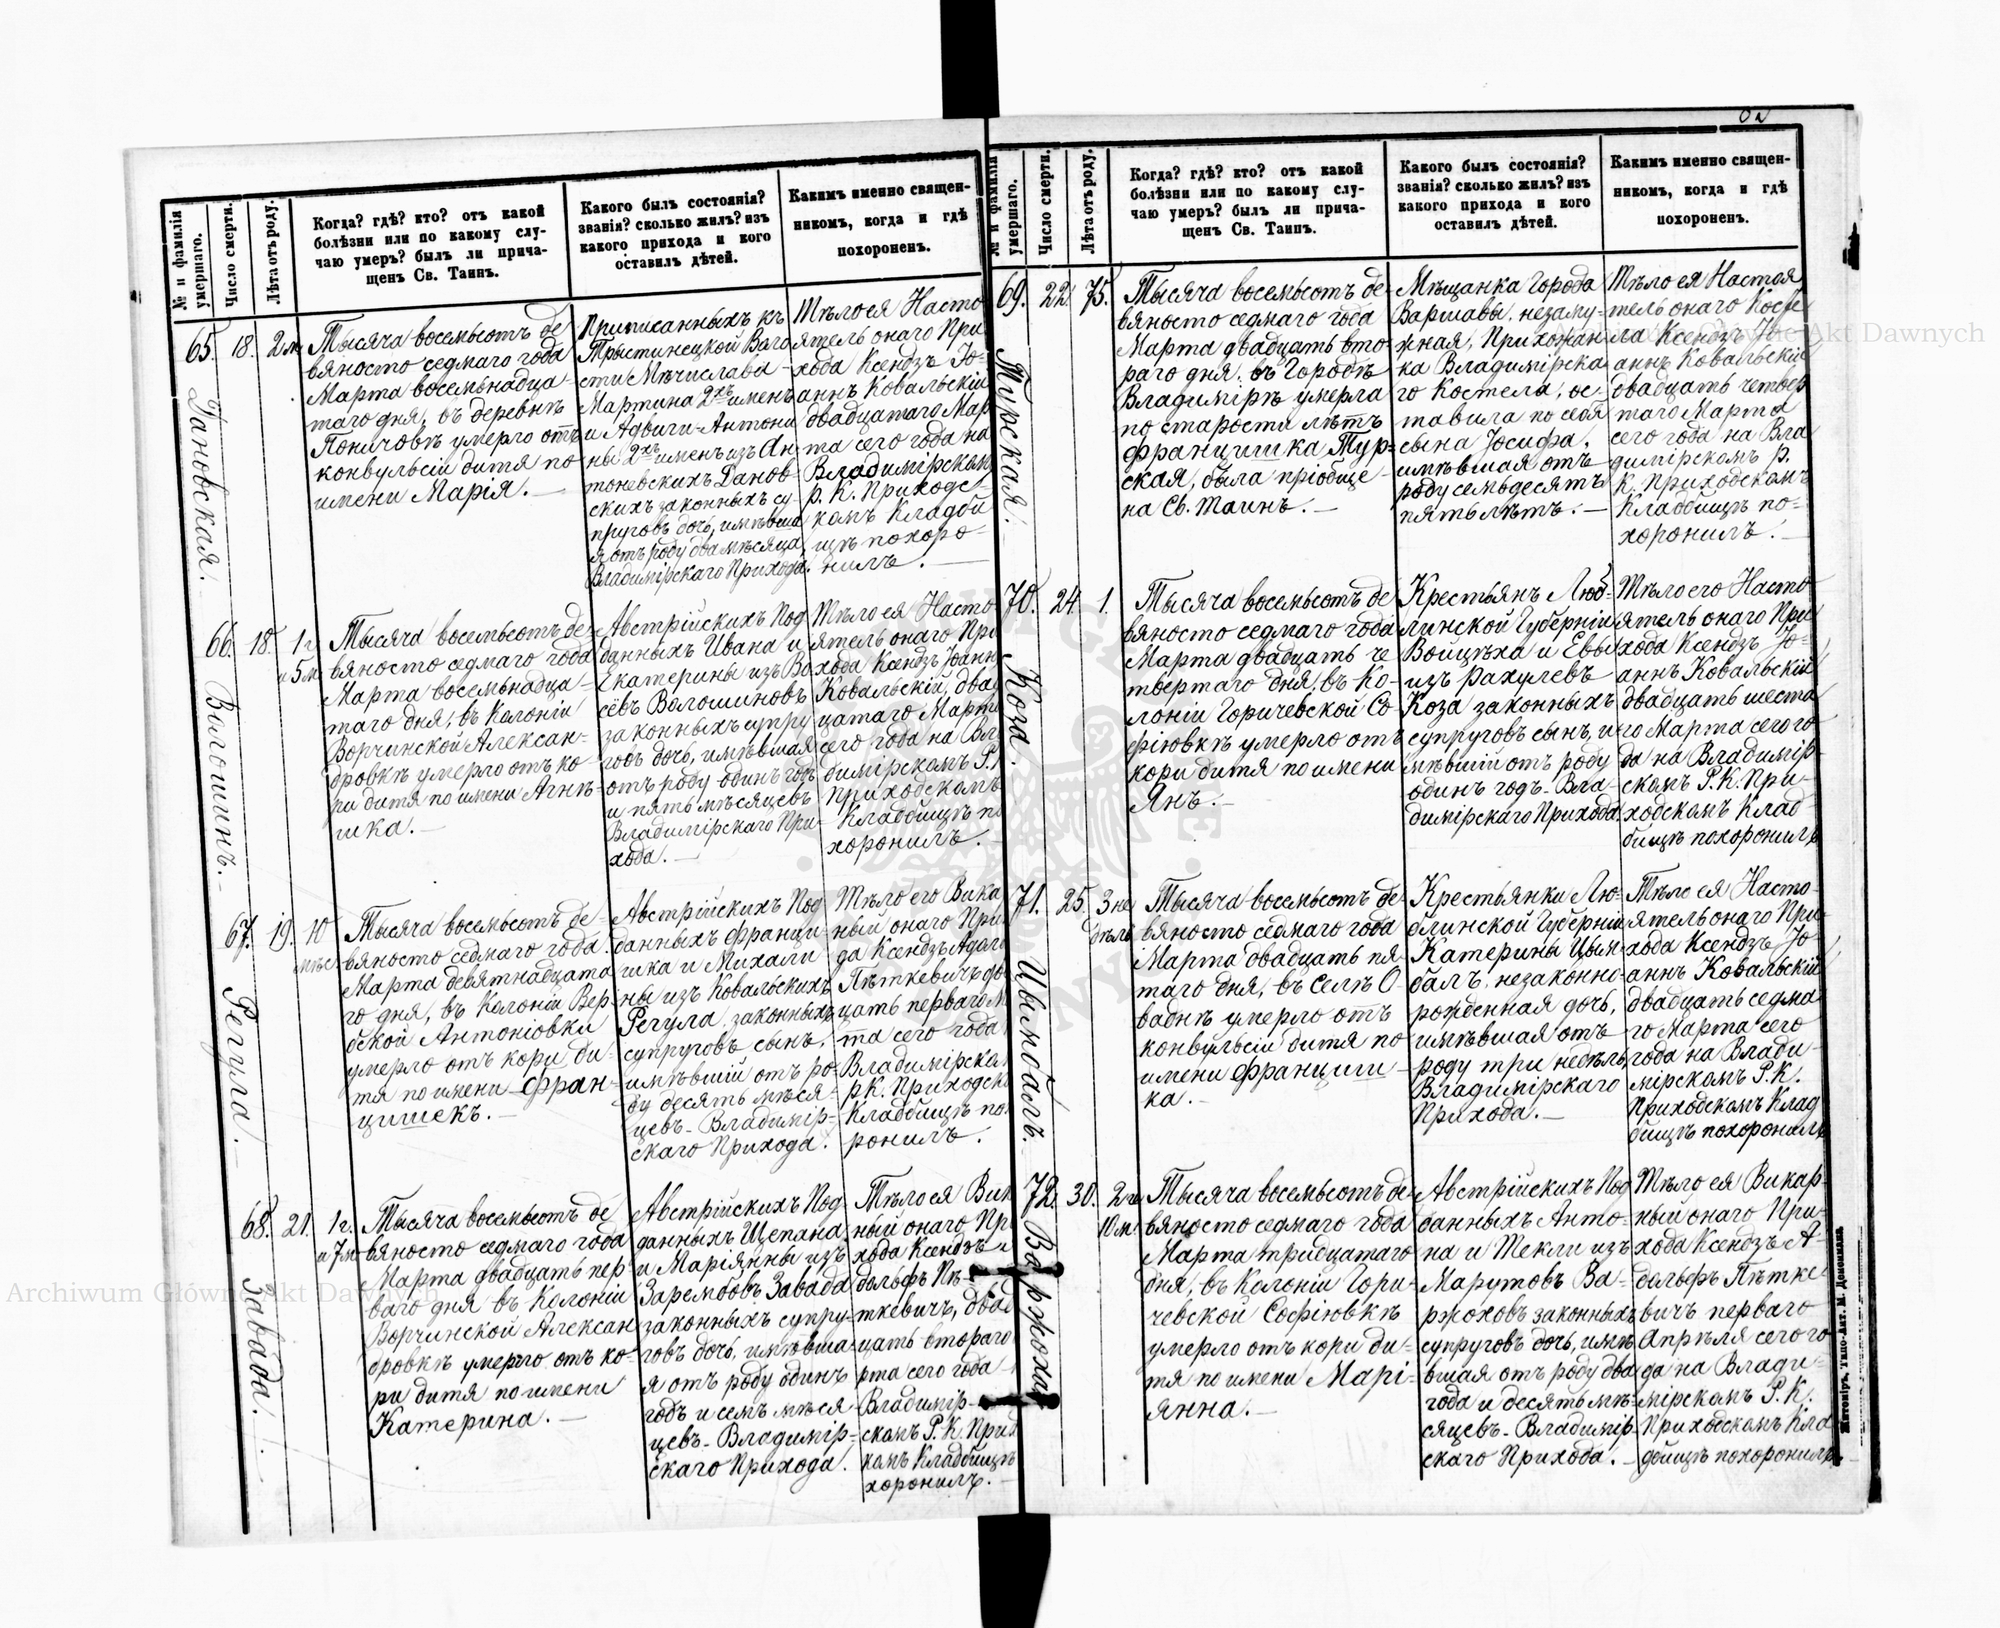 № и фамилія умершаго.
Число смерти.
Лѣта отъ роду.
Когда? гдѣ? кто? отъ какой
болѣзни или по какому слу-
чаю умеръ? былъ ли прича-
щенъ Св. Таинъ.
Какого былъ состоянія?
званія? сколько жилъ? изъ
какого прихода и кого
оставилъ дѣтей.
Какимъ именно священ-
никомъ, когда и гдѣ
похороненъ.
65.
18.
2 м.
Тысяча восемьсотъ де
вяносто седмаго года
Марта восемьнадца-
таго дня, въ деревнѣ
Поничовѣ умерло отъ
конвульсіи дитя по
имени Марія.—
Приписанныхъ къ
Трыстинецкой Воло
сти Мѣчислава-
Мартина 2хъ именъ
и Адвиги-Антони
ны 2хъ именъ изъ Ан-
тоневскихъДанов-
скихъ законныхъ су-
пруговъ дочь, имѣвша
я отъ роду два мѣсяца,
Владимірскаго Прихода.
Тѣло ея Насто
ятель онаго При
хода Ксендзъ Іо-
аннъ Ковальскій
двадцатаго Мар
та сего года на
Владимірском
р. К. Приходс-
комъ Кладби
щѣ похоро-
нилъ.
66.
18.
1 г
и 5 м
Волошинъ.
Тысяча восемьсотъ де-
вяносто седмаго года
Марта восемьнадца-
таго дня, въ Колоніи
Ворчинской Алексан-
дровкѣ умерло отъ ко-
ри дитя по имени Агнѣ-
шка.—
Австрійскихъ Под
данныхъ Ивана и
Екатерины изъ Во
сёвъ Волошиновъ
законныхъ супру
говъ дочь, имѣвшая
отъ роду одинъ годъ
и пять мѣсяцевъ
Владимірскаго При-
хода.—
Тѣло ея Насто
ятель онаго При
хода Ксендзъ Іоанн
Ковальскій, два
цатаго Марта
сего года на Вл
димірскомъ Р.
Приходскомъ
Кладбищѣ по
хоронилъ.—
67.
19.
10
мѣс.
Регула.
Тысяча восемьсотъ де-
вяносто седмаго года
Марта девятнадцата
го дня, въ Колоніи Вер
бской Антоніовки
умерло отъ кори ди-
тя по имени Фран-
цишекъ.—
Австрійскихъ Под
данныхъ Франци-
шка и Михали
ны изъ Ковальскихъ
Регула законныхъ
супруговъ сынъ,
имѣвшій отъ ро-
ду десять мѣся-
цевъ- Владимір-
скаго Прихода.
Тѣло его Вика
ный онаго При
да Ксендзъ Адол
Пѣткевичъ дв
цать перваго М
та сего года
Владимірска
рК. Приходска
Кладбищѣ по
ронилъ.
68.
21.
1 г.
и 7 м
Завада.
Тысяча восемьсотъ де
вяносто седмаго года
Марта двадцать пер
ваго дня въ Колоніи
Ворчинской Алексан
дровкѣ умерло отъ ко-
ри дитя по имени
Катерина.—
Австрійскихъ Под
данныхъ Щепана
и Маріянны изъ
Зарембовъ Завада
законныхъ супру-
говъ дочь, имѣвша-
я отъ роду одинъ
годъ и семь мѣся
цевъ- Владимір-
скаго Прихода.
Тѣло ея Вик
ный онаго Пр
хода Ксендзъ А
дольфъ Пѣ-
ткевичъ, два
цать втораго
рта сего года
Владимір-
скомъ Р. К. При
комъ Кладбищѣ
хоронилъ.
№ и фамилія умершаго.
Число смерти.
Лѣта отъ роду.
Когда? гдѣ? кто? отъ какой
болѣзни или по какому слу-
чаю умеръ? былъ ли прича-
щенъ Св. Таинъ.
Какого былъ состоянія?
званія? сколько жилъ? изъ
какого прихода и кого
оставилъ дѣтей.
Какимъ именно священ-
никомъ, когда и гдѣ
похороненъ.
69.
22.
75.
Турская.
Тысяча восемьсотъ де-
вяносто седмаго года
Марта двадцать вто-
раго дня, въ Городѣ
Владимірѣ умерла
по старости лѣтъ
Францишка Тур-
ская, была пріобще-
на Св. Таинъ.—
Мѣщанка Города
Варшавы, незаму-
жная, Прихожан
ка Владимірска
го Костела, ос-
тавила по себя
сына Іосифа,
имѣвшая отъ
роду семьдесятъ
пять лѣтъ.—
Тѣло ея Настоя
тель онаго Косте
ла Ксендзъ Іо
аннъ Ковальскій
двадцать четвер
таго Марта
сего года на Вла
димірскомъ р.
К. Приходскомъ
Кладбищѣ по-
хоронилъ.—
70.
24.
1.
Коза.
Тысяча восемьсотъ де
вяносто седмаго года
Марта двадцать че
твертаго дня, въ Ко-
лоніи Горичевской Со-
фіювкѣ умерло отъ
кори дитя по имени
Янъ.—
Крестьянъ Люб-
линской Губерніи
Войцѣха и Евы
изъ Рахулевъ
Коза законныхъ
супруговъ сынъ, и
мѣвшій отъ роду
одинъ годъ- Вла-
димірскаго Прихода.
Тѣло его Насто
ятель онаго При
хода Ксендзъ Іо-
аннъ Ковальскій
двадцать шеста
го Марта сего го
да на Владимір-
скомъ Р. К. При-
ходскомъ Клад-
бищѣ похоронилъ
71.
25.
3 не
дѣль
Цымбалъ.
Тысяча восемьсотъ де-
вяносто седмаго года
Марта двадцать пя-
таго дня, въ Селѣ О-
ваднѣ умерло отъ
конвульсіи дитя по
имени Францish-
ка.—
Крестьянки Лю-
блинской Губерніи
Катерины Цым-
балъ, незаконно-
рожденная дочь,
имѣвшая отъ
роду три недѣль
Владимірскаго
Прихода.—
Тѣло ея Насто-
ятель онаго При-
хода Ксендзъ Іо-
аннъ Ковальскій
двадцать седма
го Марта сего
года на Влади-
мірскомъ Р. К.
Приходскомъ Клад
бищѣ похоронилъ
72.
30.
2 г.
10 м.
Варжоха.
Тысяча восемьсотъ де-
вяносто седмаго года
Марта тридцатаго
дня, въ Колоніи Гори-
чевской Софіювкѣ
умерло отъ кори ди-
тя по имени Марі-
янна.—
Австрійскихъ Под
данныхъ Анто-
на и Теклы изъ
Марутовъ Ва-
ржоховъ законныхъ
супруговъ дочь, имѣ
вшая отъ роду два
года и десять мѣ-
сяцевъ- Владимір
скаго Прихода.—
Тѣло ея Викар-
ный онаго При-
хода Ксендзъ А-
дольфъ Пѣтке
вичъ перваго
Апрѣля сего го
да на Влади-
мірскомъ Р. К.
Приходскомъ Кла
дбищѣ похоронилъ.
Житоміръ, типо-лит. М. Дененмана
Archiwum Główne Akt Dawnych